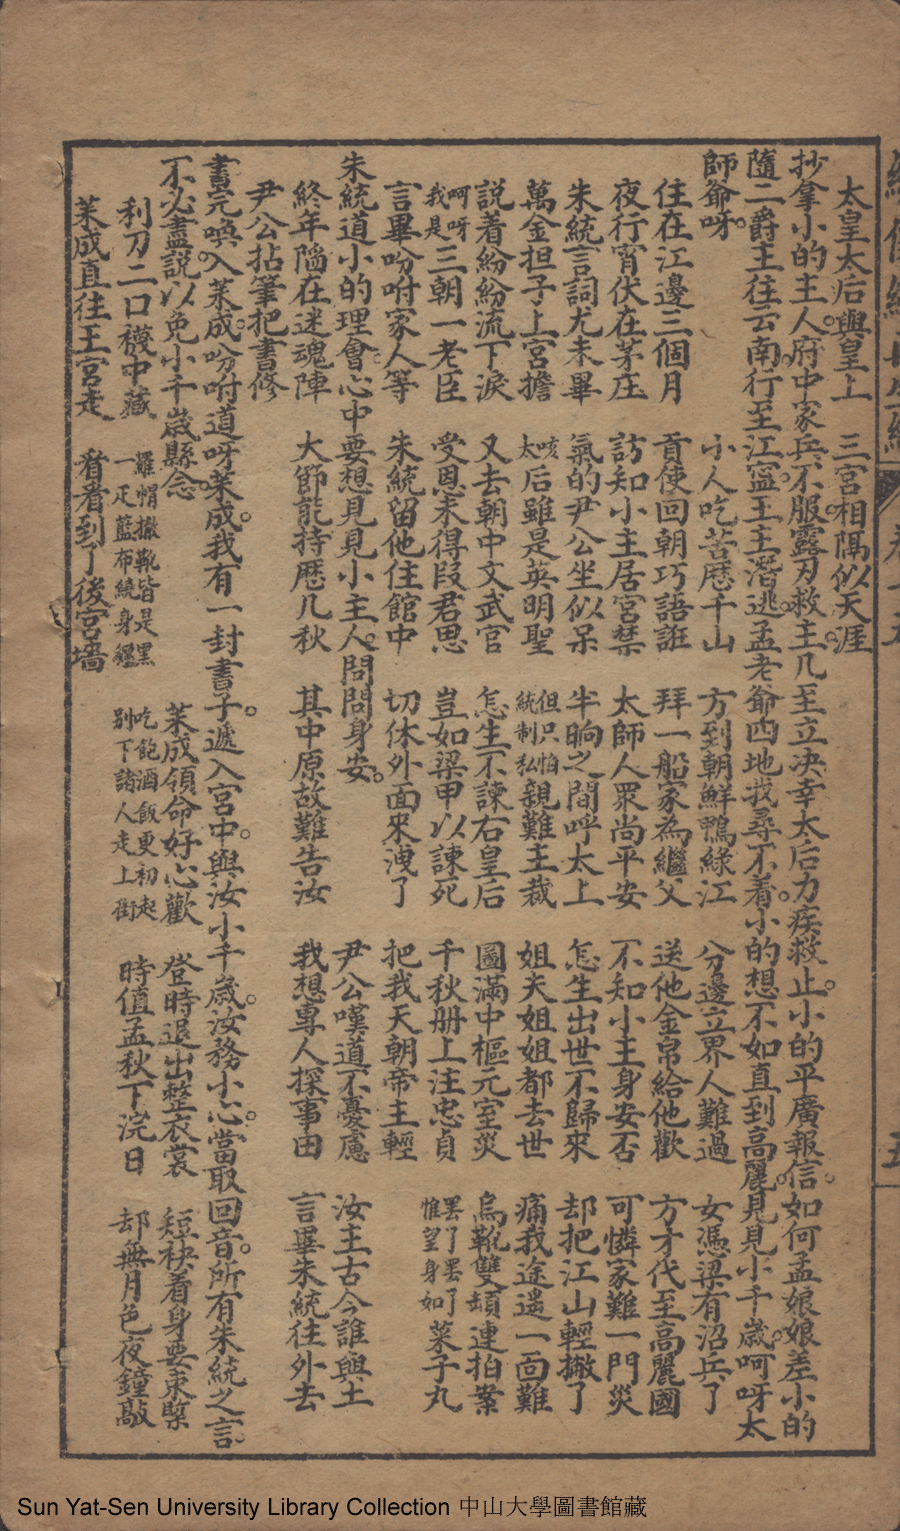 太皇太后與皇上 三宮相隅似天涯
抄拿小的主人。府中家兵不服。露刃救主。几至立决。幸太后力疾救止。小的平廣報信。如何孟娘娘差小的
隨二爵主往云南。行至江寧。王主潛逃。孟老爺四地找尋不着。小的想不如直到高麗。見見小千歲。呵呀太
師爺呀。 小人吃苦歷千山 方到朝鮮鴨綠江 分邊立界人難過 女憑梁有沼兵了
住在江邊三個月 貢使回朝巧語誑 拜一船家為繼父 送他金帛給他歡 方才代至高麗國
夜行宵伏在茅庄 訪知小主居宮禁 太師人眾尚平安 不知小主身安否 可憐家難一門災
朱統言詞尤未畢 氣的尹公坐似呆 半晌之間呼太上 怎生出世不歸來 却把江山輕撇了
萬金担子上宮擔 咳太后雖是英明聖 但只怕統制私親難主裁 姐夫姐姐都去世 痛我途遙一面難
説着紛紛流下淚 又去朝中文武官 怎生不諫右皇后 圖滿中樞元室災 烏靴雙頓連拍案
呵呀我是三朝一老臣 受恩未得叚君恩 豈如梁甲以諫死 千秋册上注忠貞 罷了罷了惟望身如菜子丸
言畢吩咐家人等 朱統留他住館中 切休外面來洩了 把我天朝帝主輕
朱統道小的理會。心中要想見見小主人。問問身安。 尹公嘆道不憂慮 汝主古今誰與土
終年陷在迷魂陣 大節能持歷几秋 其中原故難告汝 我想專人探事由 言畢朱統往外去
尹公拈筆把書修
書元喚入萊成。吩咐道。呀萊成。我有一封書子。遞入宮中。與汝小千歲。汝務小心。當取回音。所有朱統之言。
不必盡説。以免小千歲縣念。 萊成領命好心歡 登時退出整衣裳 短袂着身要束緊
利刀二口襪中藏 羅帽撇靴皆是黑一疋藍布繞身纏 吃飽酒飯更初起別下諸人走上街 時值孟秋下浣日 却無月色夜鐘敲
萊成直往王宮走 看看到了後宮墻